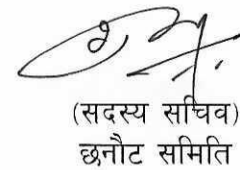 (सदस्य सचिव)
छनौट समिति